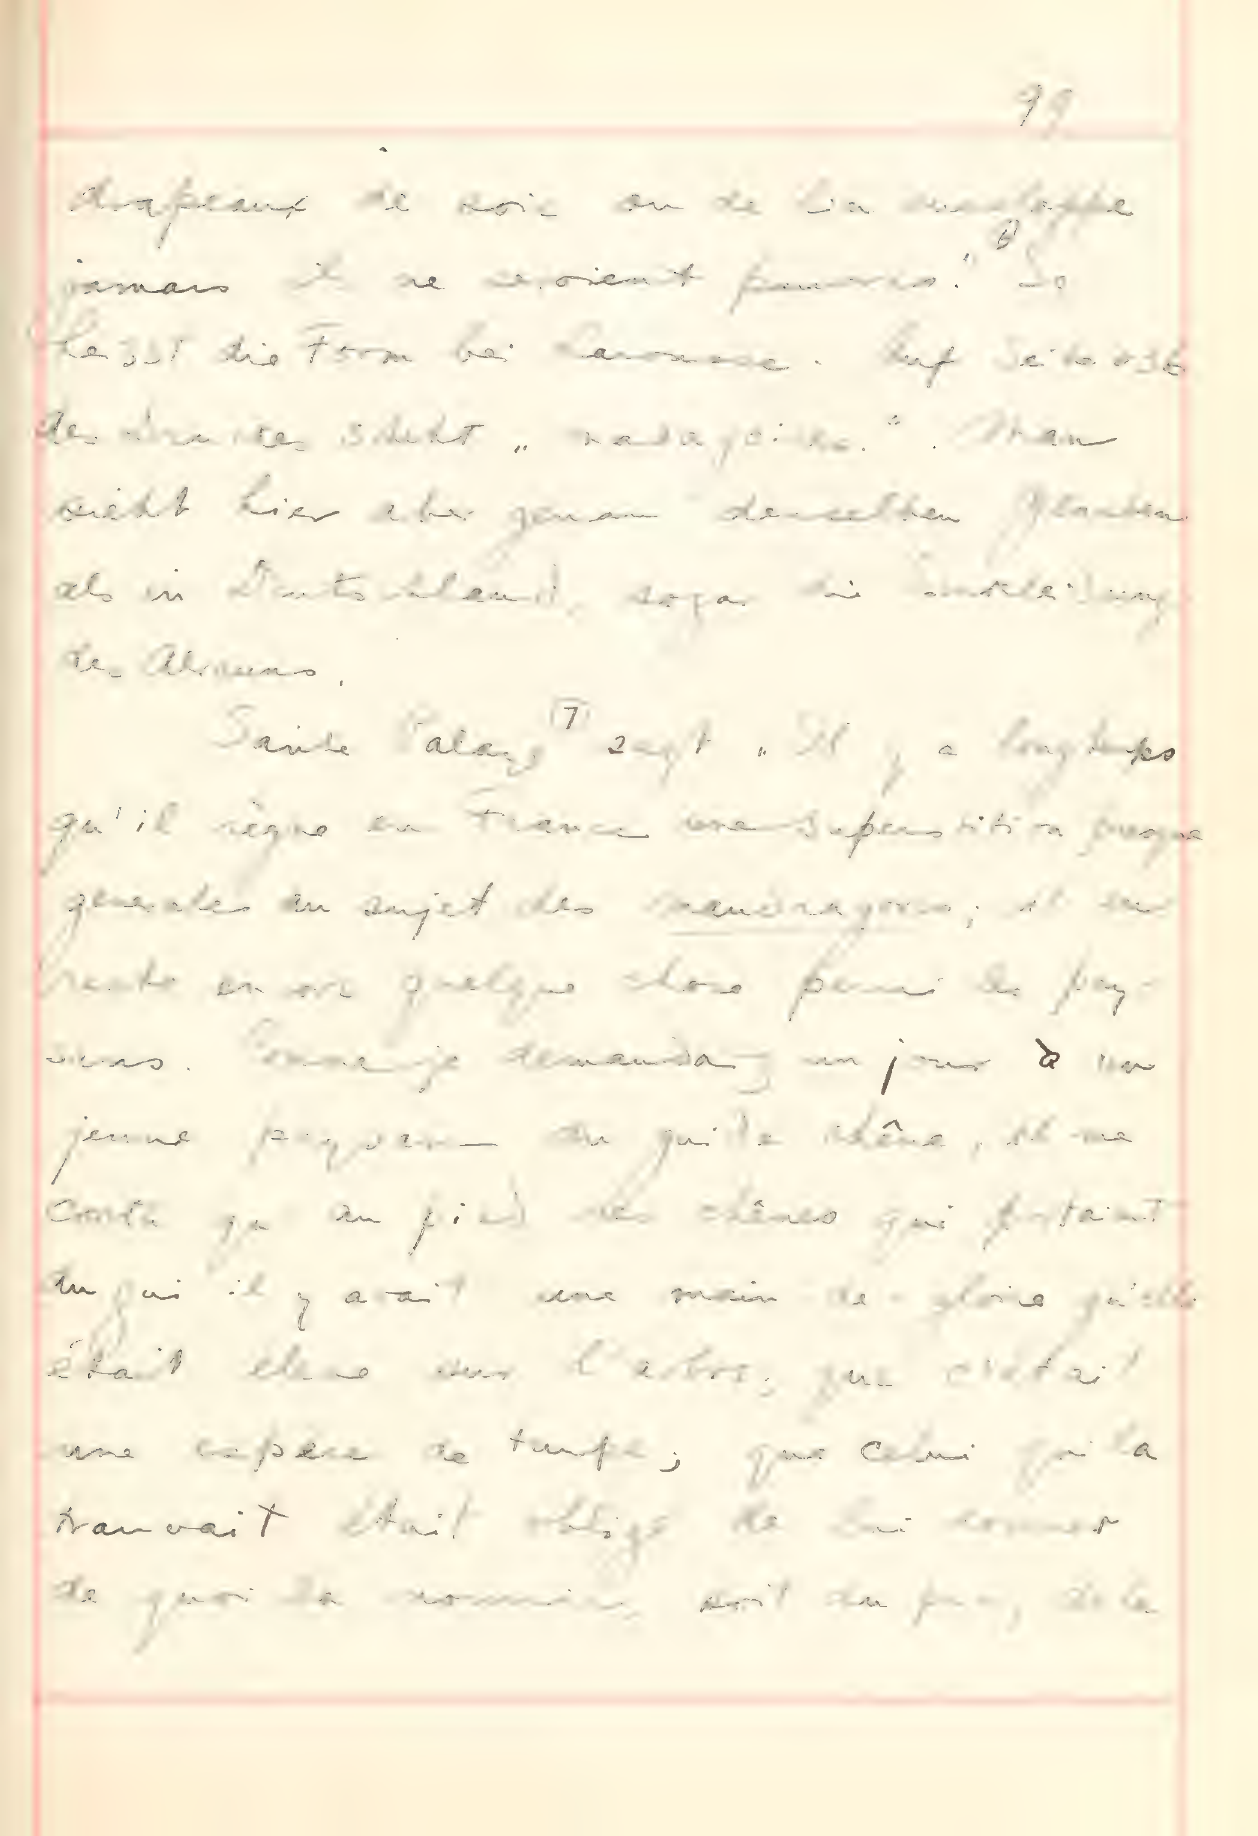 99
drapeaux de soie ou de lin enveloppe
jamais il ne seroient pauvres." So
heisst die Form bei Larousse. Auf Seite 936
des Bandes steht „ madagoires." . Man
sieht hier aber genau denselben Glauben
als in Deutschland, sogar die Einkleidung
des Alrauns.
Sainte Palaye (7) sagt „ Il y a longtemps
qu'il règne en France une superstition presque
generales au sujet des mandragores; il en
reste encore quelque chose parmi les pay-
sans. Comme je demandais un jour à un
jeune paysan du gui de chêne, il me
conta qu' au pied des chênes qui portaient
du gui il y avait une main de gloire qu'elle
était eleve sur l'arbre, que c'était
une espèce de taupe; que celui qui la
trouvait était obligé de lui donner
de quoi la nourrir, soit du pain, de la